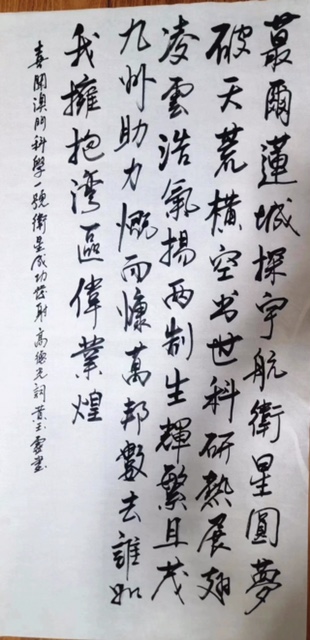 蕞爾蓮城探宇航衛星圓夢
破天荒橫空出世科研熱展翅
凌雲浩氣揚兩制生輝繁且茂
九州助力慨而慷萬邦數去誰如
我擁抱灣區偉業煌
喜聞澳門科學一號衛星成功發射 高德光詞 黃玉靈書